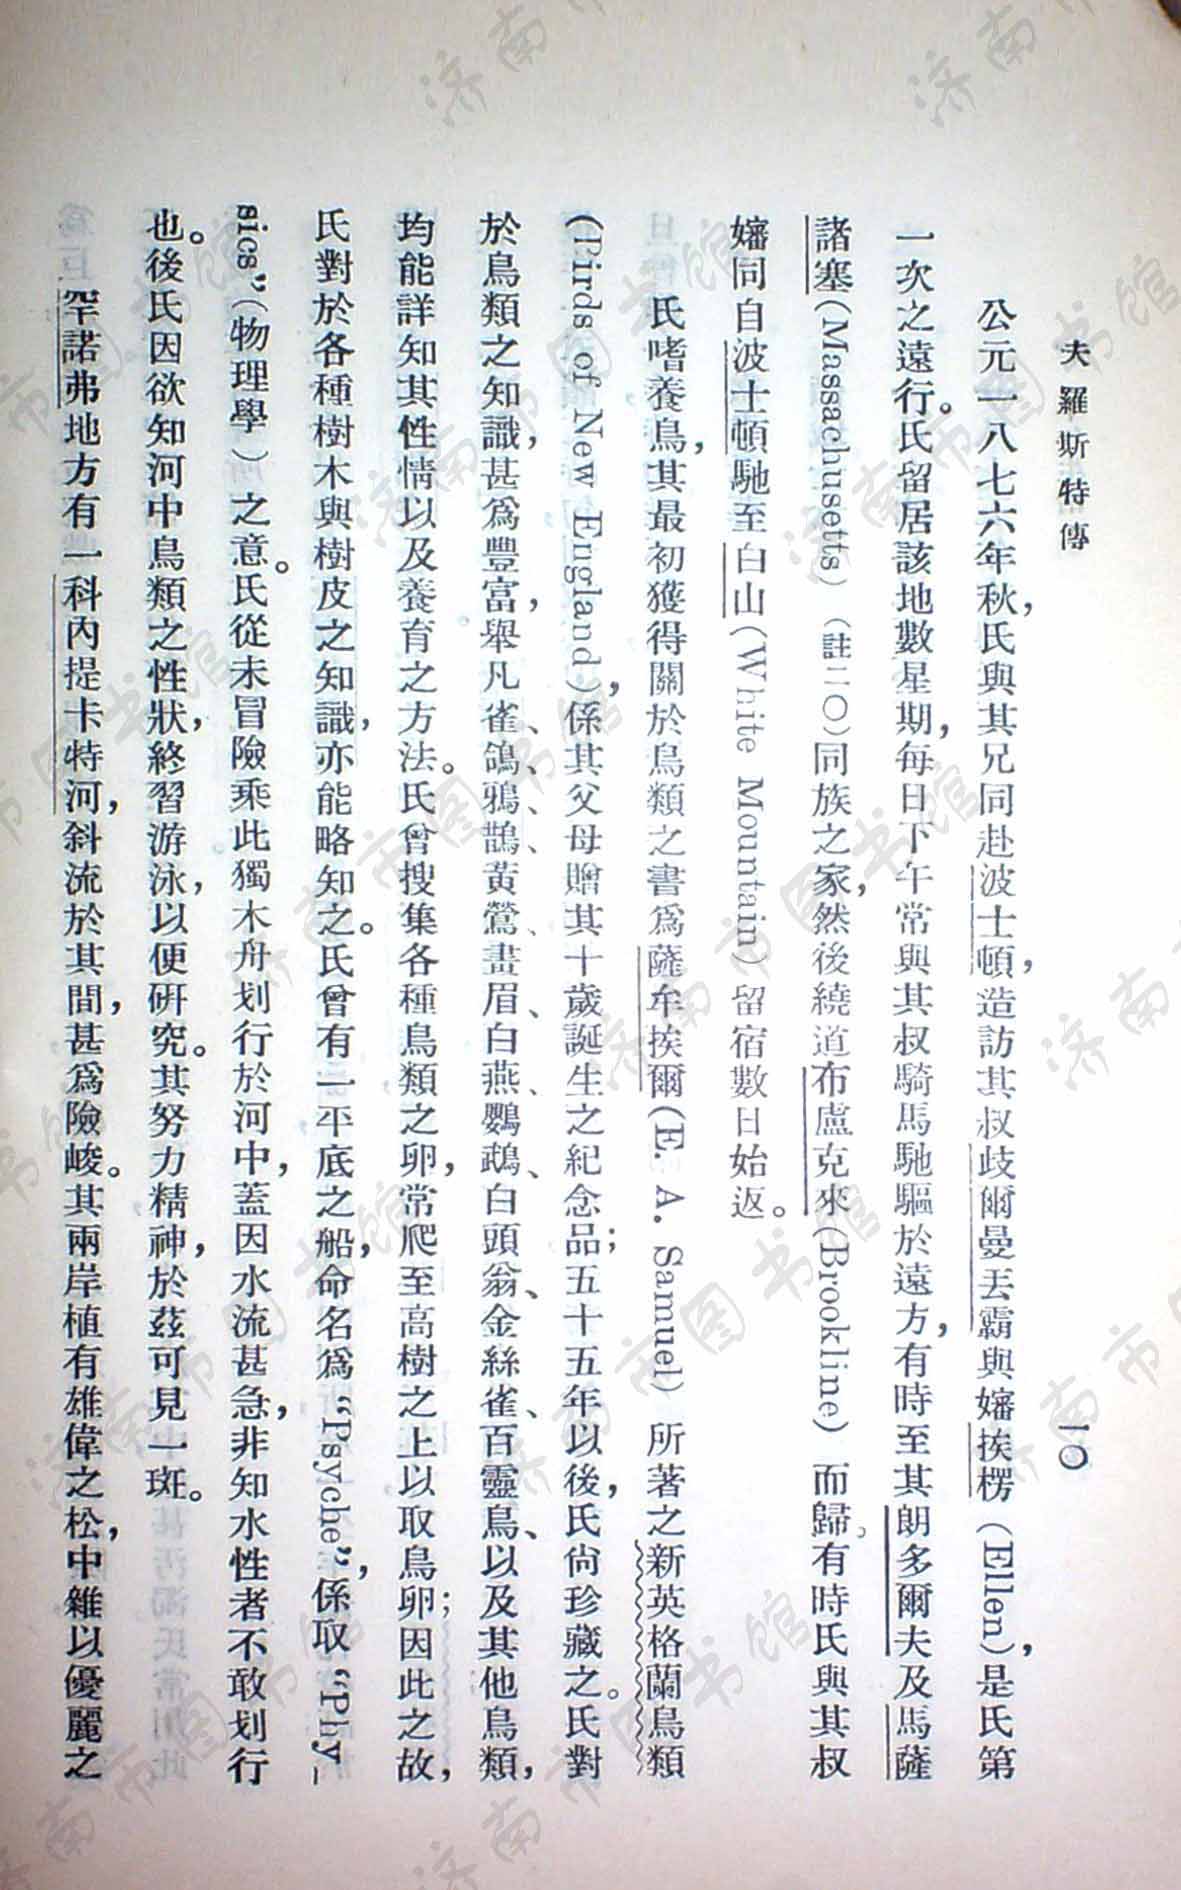 夫羅斯特傳
一〇
公元一八七六年秋，氏與其兄同赴波士頓，造訪其叔歧爾曼丟霸與嬸挨楞（Ellen），是氏第
一次之遠行。氏留居該地數星期，每日下午常與其叔騎馬馳驅於遠方，有時至其朗多爾夫及馬薩
諸塞（Massachusetts）（註二〇）同族之家，然後繞道布盧克來（Brookline）而歸。有時氏與其叔
嬸同自波士頓馳至白山（White Mountain）留宿數日始返。
氏嗜養鳥，其最初獲得關於鳥類之書爲薩牟挨爾（E. A. Samuel）所著之新英格蘭鳥類
（Birds of New England），係其父母贈其十歲誕生之紀念品；五十五年以後，氏尙珍藏之。氏對
於鳥類之知識，甚爲豐富，舉凡雀、鴿、鴉、鵲、黃鶯、畫眉、白燕、鸚鵡、白頭翁、金絲雀、百靈鳥、以及其他鳥類，
均能詳知其性情以及養育之方法。氏曾搜集各種鳥類之卵，常爬至高樹之上以取鳥卵；因此之故，
氏對於各種樹木與樹皮之知識，亦能略知之。氏曾有一平底之船，命名爲“Psyche”，係取“Phy-
sics”（物理學）之意。氏從未冒險乘此獨木舟划行於河中，蓋因水流甚急，非知水性者不敢划行
也。後氏因欲知河中鳥類之性狀，終習游泳，以便研究。其努力精神，於茲可見一斑。
罕諾弗地方有一科內提卡特河，斜流於其間，甚爲險峻。其兩岸植有雄偉之松，中雜以優麗之
濟南市图书馆